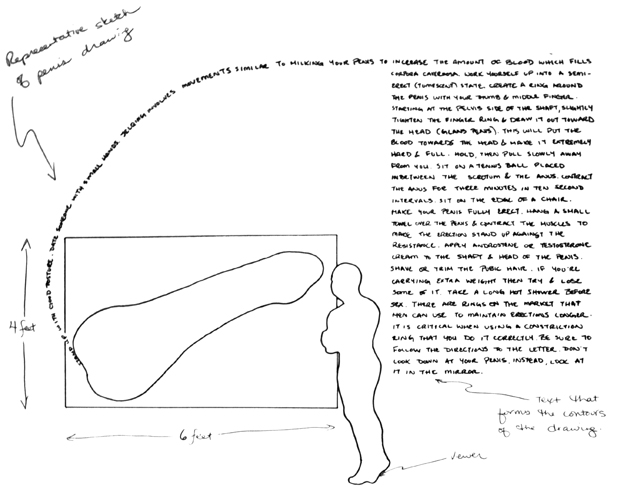 Representative sketch
of penis drawing
STAND UP WITH GOOD POSTURE. DATE SOMEONE WITH SMALL HANDS. JELQING INVOLVES MOVEMENTS SIMILAR TO MILKING YOUR PENIS TO INCREASE THE AMOUNT OF BLOOD WHICH FILLS
CORPORA CAVERNOSA. WORK YOURSELF UP INTO A SEMI-
ERECT (TUMESCENT) STATE. CREATE A RING AROUND
THE PENIS WITH YOUR THUMB & MIDDLE FINGER.
STARTING AT THE PELVIS SIDE OF THE SHAFT, SLIGHTLY
TIGHTEN THE FINGER RING & DRAW IT OUT TOWARD
THE HEAD (GLANS PENIS). THIS WILL PUT THE
BLOOD TOWARDS THE HEAD & MAKE IT EXTREMELY
HARD & FULL. HOLD, THEN PULL SLOWLY AWAY
FROM YOU. SIT ON A TENNIS BALL PLACED
INBETWEEN THE SCROTUM & THE ANUS. CONTRACT
THE ANUS FOR THREE MINUTES IN TEN SECOND
INTERVALS. SIT ON THE EDGE OF A CHAIR.
MAKE YOUR PENIS FULLY ERECT. HANG A SMALL
TOWEL OVER THE PENIS & CONTRACT THE MUSCLES TO
MAKE THE ERECTION STAND UP AGAINST THE
RESISTANCE. APPLY ANDROSTINE OR TESTOSTERONE
CREAM TO THE SHAFT & HEAD OF THE PENIS.
SHAVE OR TRIM THE PUBIC HAIR. IF YOU'RE
CARRYING EXTRA WEIGHT THEN TRY & LOSE
SOME OF IT. TAKE A LONG HOT SHOWER BEFORE
SEX. THERE ARE RINGS ON THE MARKET THAT
MEN CAN USE TO MAINTAIN ERECTIONS LONGER.
IT IS CRITICAL WHEN USING A CONSTRICTION
RING THAT YOU DO IT CORRECTLY. BE SURE TO
FOLLOW THE DIRECTIONS TO THE LETTER. DON'T
LOOK DOWN AT YOUR PENIS, INSTEAD, LOOK AT
IT IN THE MIRROR.
4 feet
6 feet
Text that
forms the contours
of the drawing.
viewer